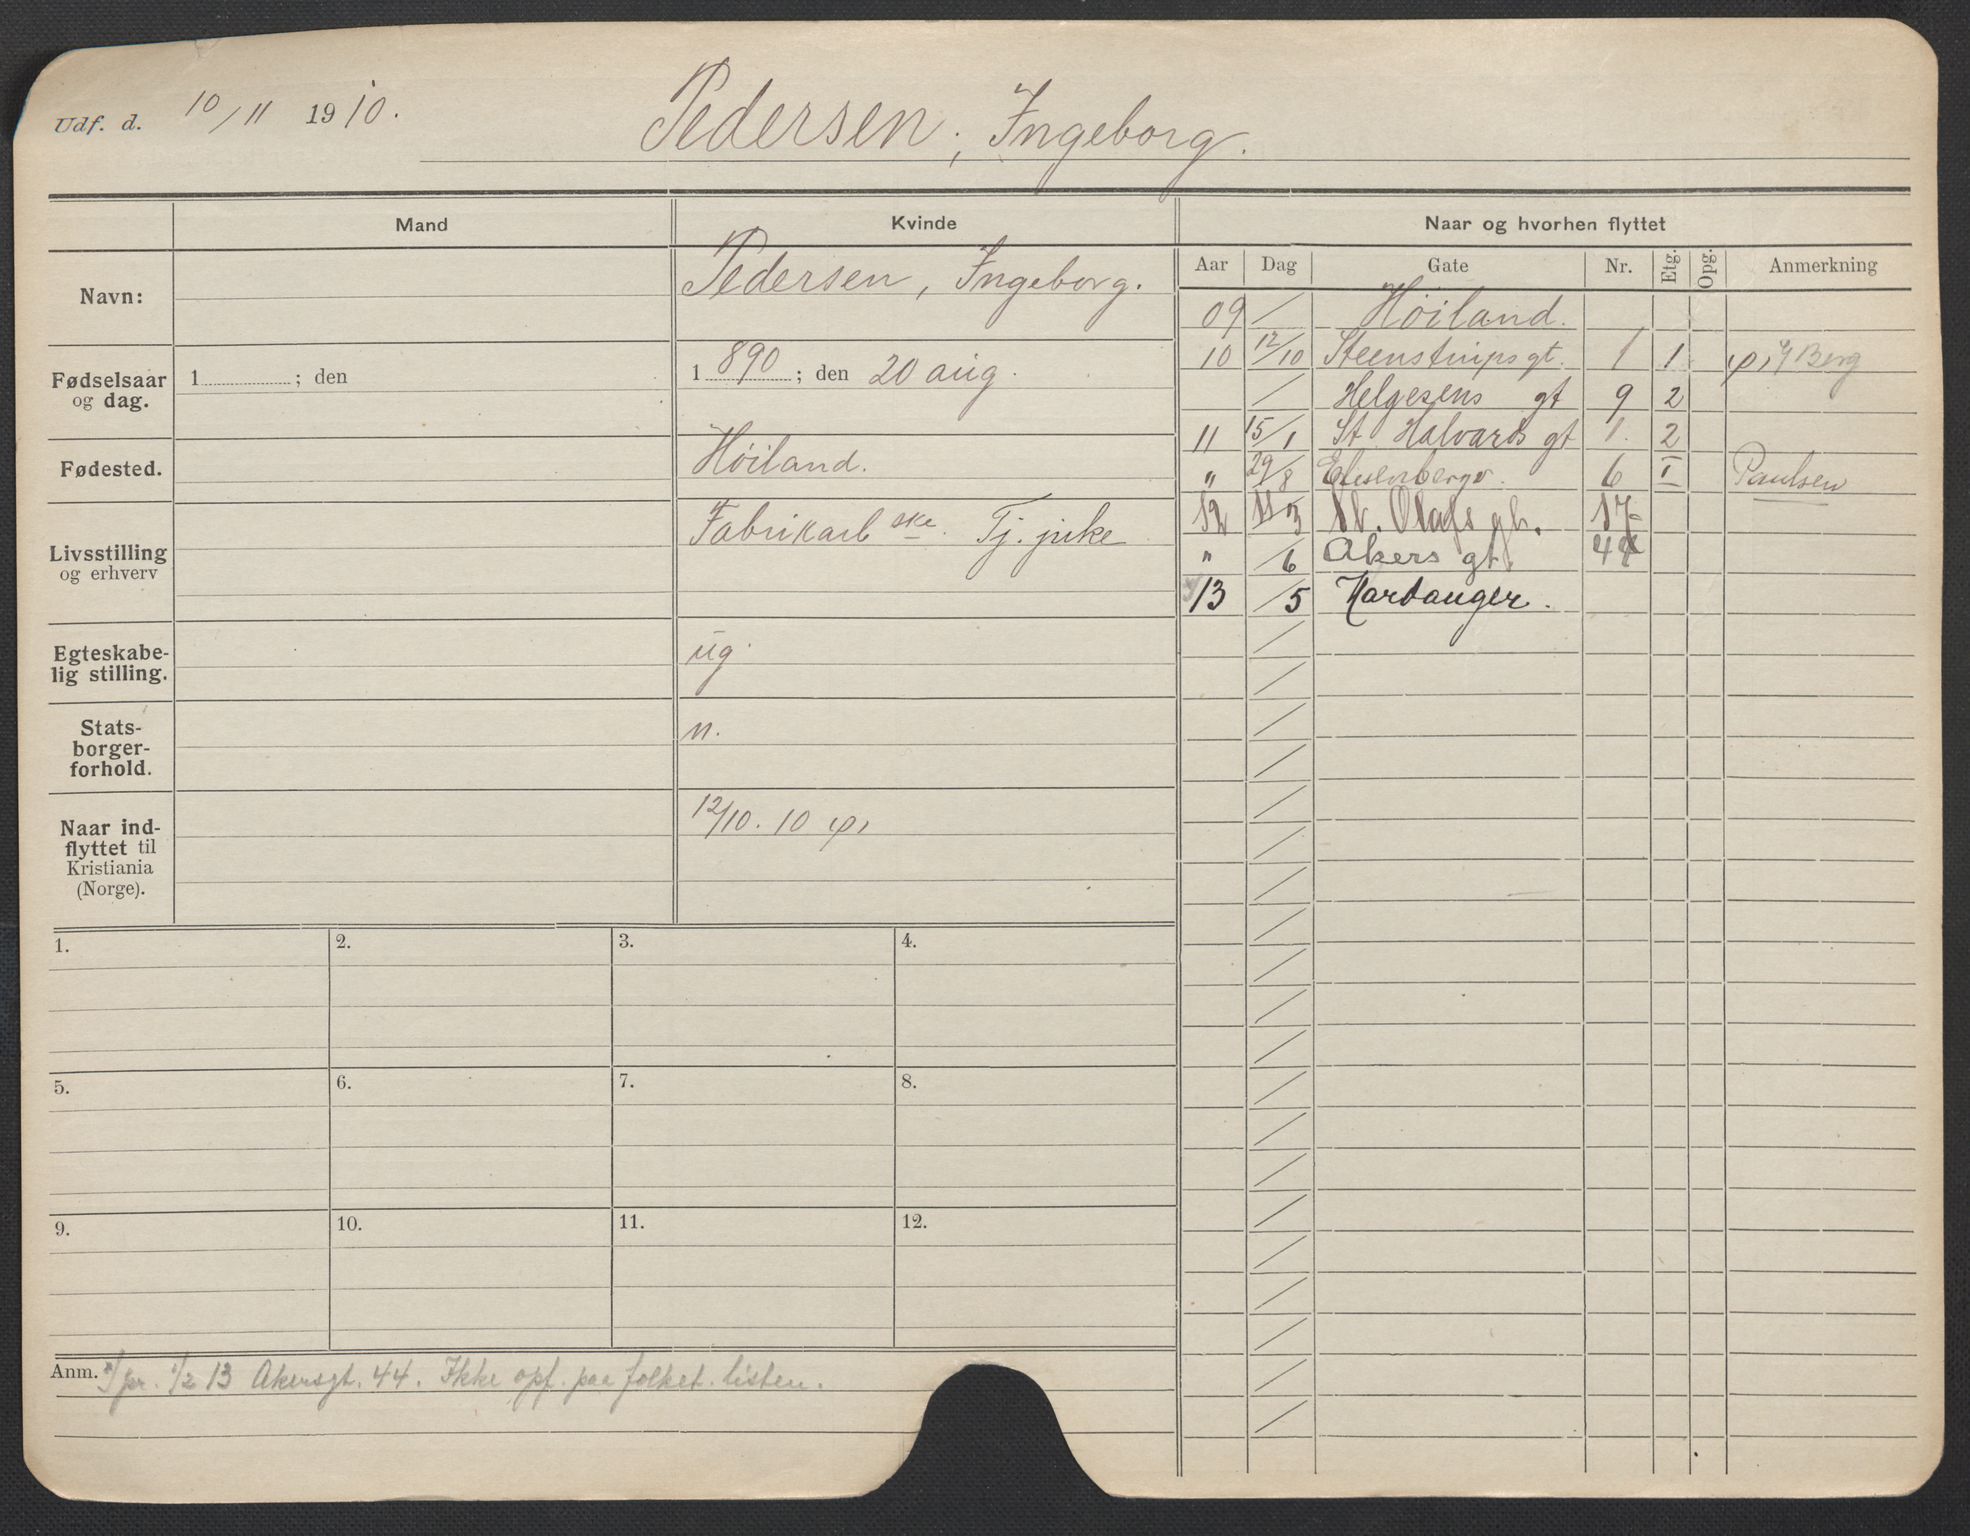 Udf. d. 10/11 1910. Pedersen, Ingeborg.
Mand Kvinde Naar og hvorhen flyttet
Aar Dag Gate Nr. Etg. Opg. Anmerkning
Navn: Pedersen, Ingeborg.
Fødselsaar og dag. 1 ; den 1890 ; den 20 aug.
Fødested. Høiland.
Livsstilling og erhverv Fabrikarb ske. Tj. pike
Egteskabe-
lig stilling. ug.
Stats-
borger-
forhold. n.
Naar ind-
flyttet til
Kristiania
(Norge). 12/10. 10
09 / Høiland.
10 12/10 Steenstrupsgt. 1 1 Berg
/ Helgesens gt 9 2
11 15/1 St Halvards gt 1. 2
" 29/8 6 I Paulsen
12 St. Olafs gt. 17
" /6 Akers gt. 44
13 /5 Hardanger.
1. 2. 3. 4.
5. 6. 7. 8.
9. 10. 11. 12.
Anm. pr. 1/2 13 Akersgt. 44. Ikke opf. paa folket. listen.